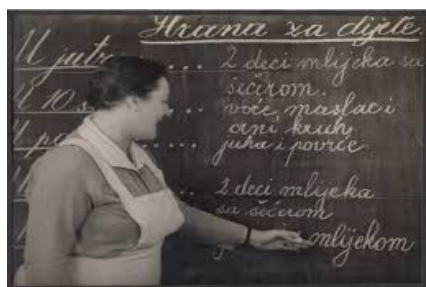 Hrana za dijete.
U jutro .... 2 deci mlijeka sa
šećirom.
U 10 s. .. voće, maslac i
crni kruh,
U po ..... juha i povrće
.. 2 deci mlijeka
sa šećirom
mlijekom